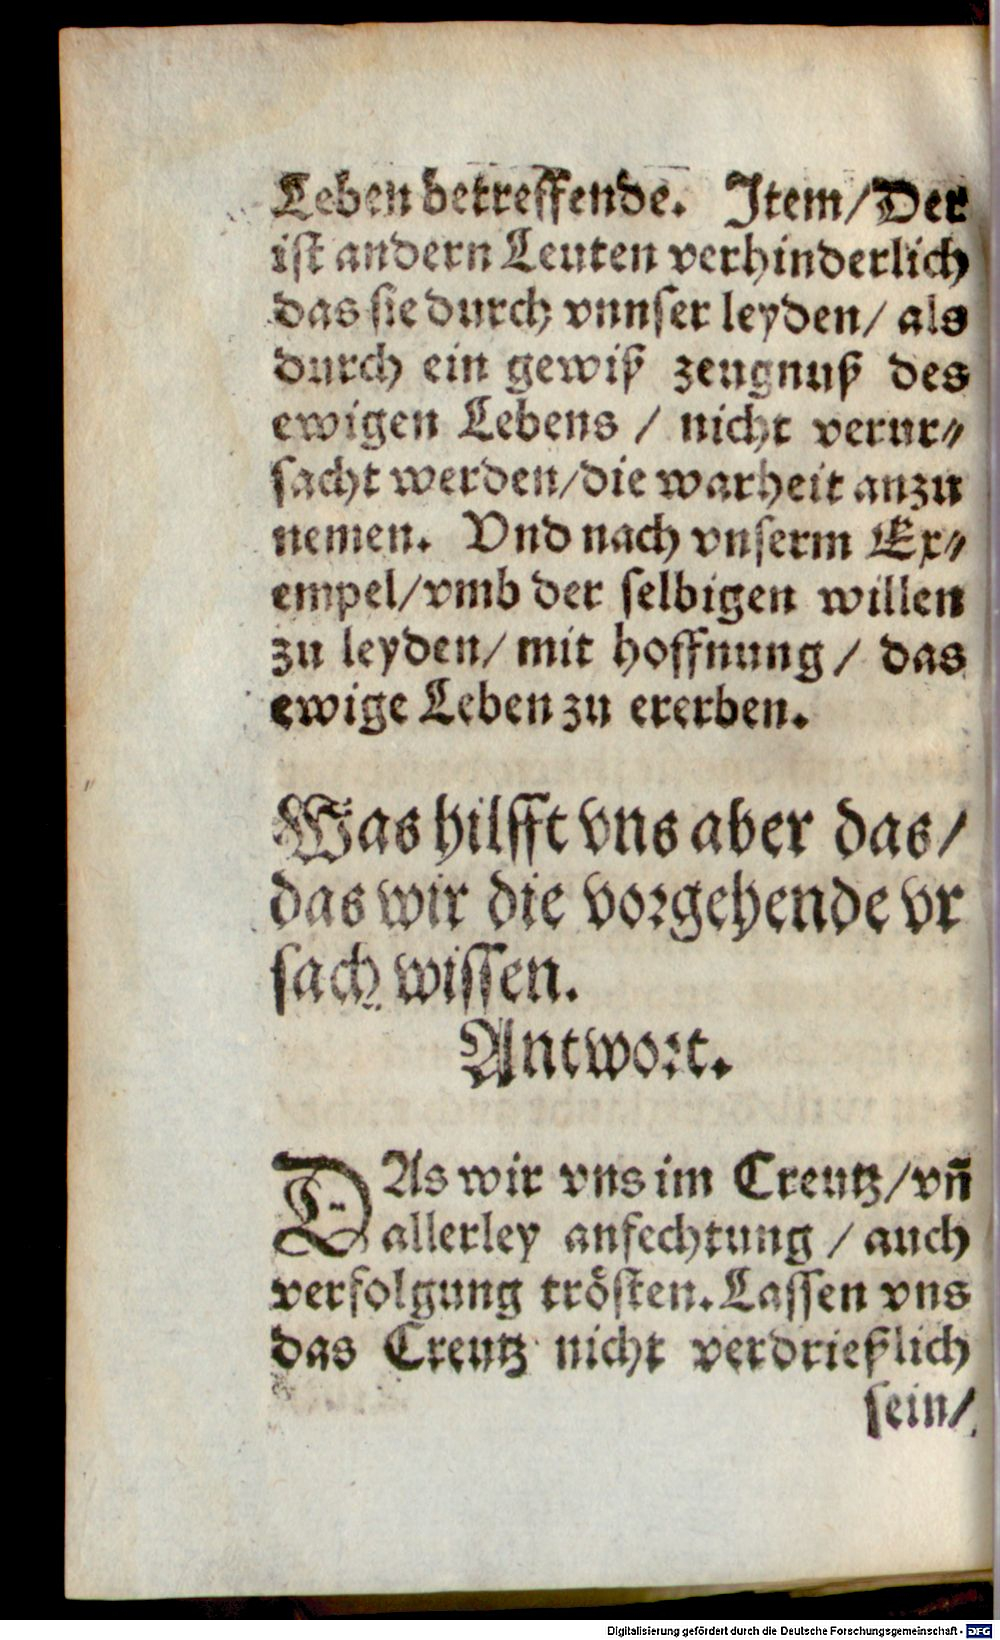 Leben betreffende. Item/Der
ist andern Leuten verhinderlich
das sie durch vnnser leyden/ als
durch ein gewiß zeugnuß des
ewigen Lebens / nicht verur⸗
sacht werden/die warheit anzu
nemen. Vnd nach vnserm Ex⸗
empel/vmb der selbigen willen
zu leyden/ mit hoffnung / das
ewige Leben zu ererben.
Was hilfft vns aber das/
das wir die vorgehende vr
sach wissen.
Antwort.
DAs wir vns im Creutz/vñ
allerley anfechtung / auch
verfolgung trösten. Lassen vns
das Creutz nicht verdrießlich
sein/
Digitalisierung gefördert durch die Deutsche Forschungsgemeinschaft - DFG